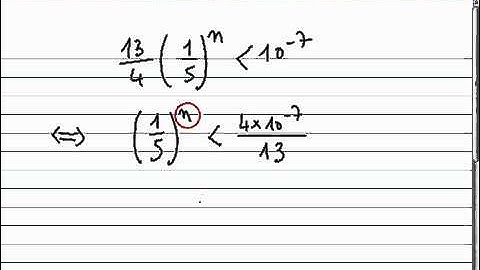 13/4 (1/5)^n < 10^-7
⇔ (1/5)^n < 4×10^-7/13